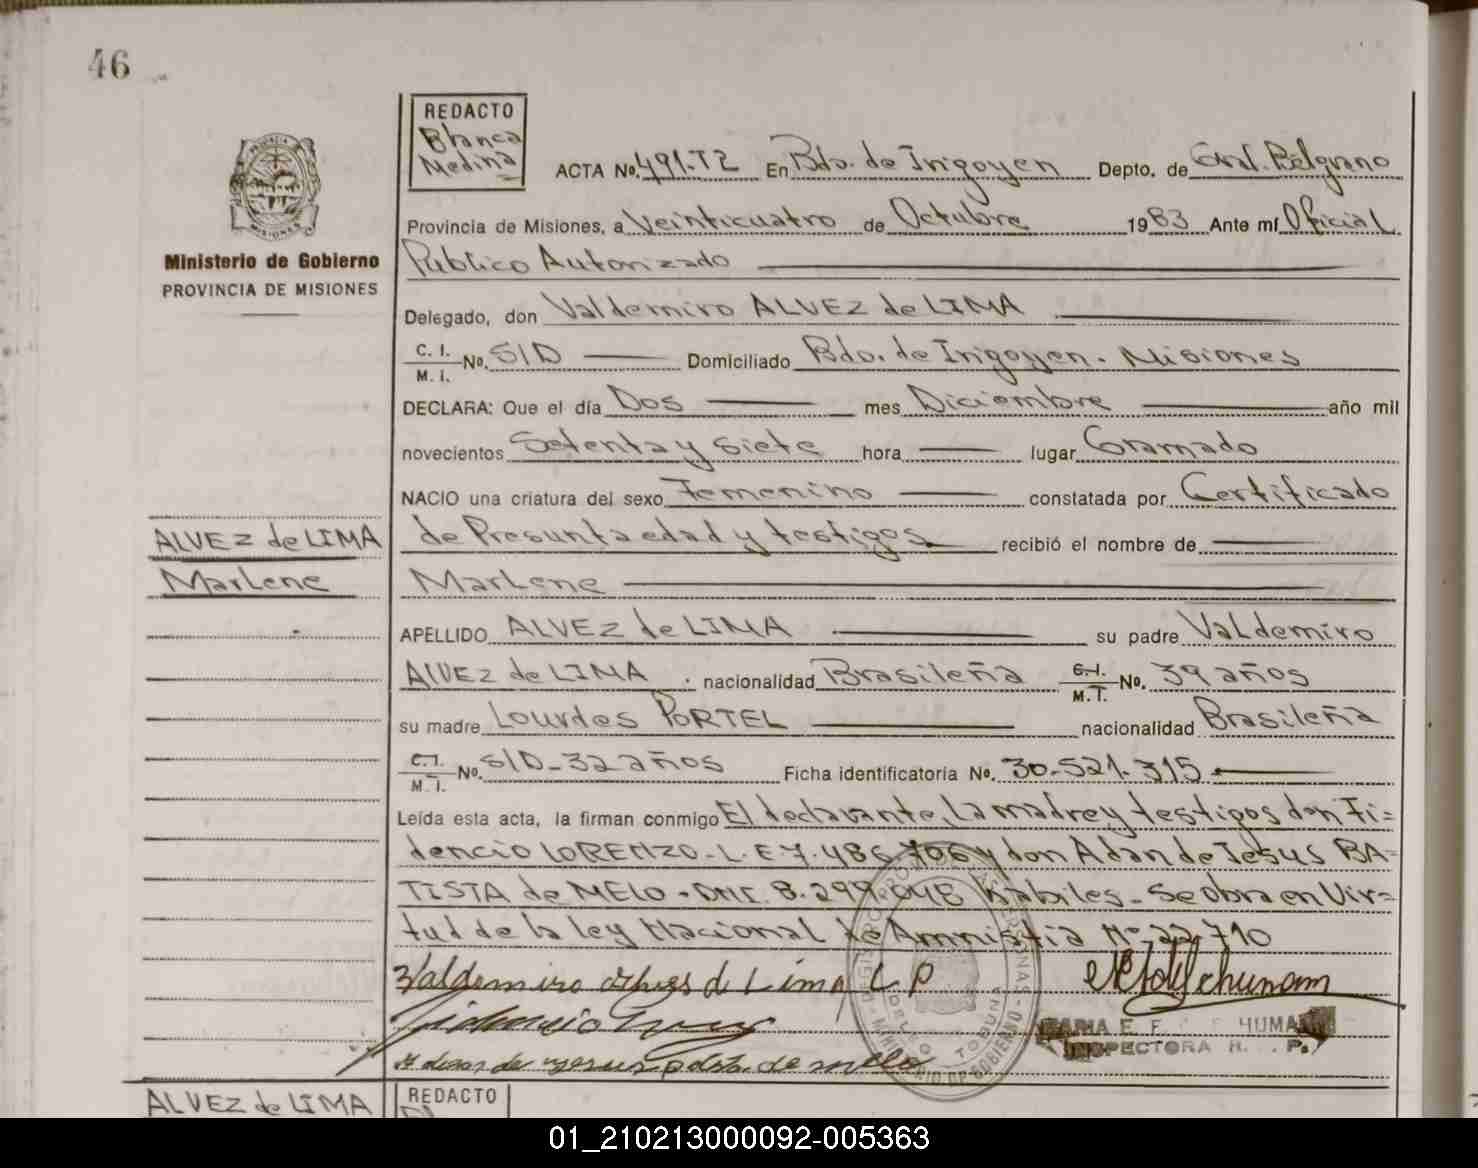 46
REDACTO
Blanca
Medina
ACTA No. 491-T2 En Bdo. de Irigoyen Depto. de Gral. Belgrano
Provincia de Misiones, a Veinticuatro de Octubre 1983 Ante mí Oficial
Publico Autorizado
Ministerio de Gobierno
PROVINCIA DE MISIONES
Delegado, don Valdemiro ALVEZ de LIMA
C. I.
M. I. No. S/D Domiciliado Bdo. de Irigoyen. Misiones
DECLARA: Que el día Dos mes Diciembre año mil
novecientos Setenta y siete hora lugar Gramado
NACIO una criatura del sexo Femenino constatada por Certificado
ALVEZ de LIMA
Marlene
de Presunta edad y testigos recibió el nombre de
Marlene
APELLIDO ALVEZ de LIMA su padre Valdemiro
ALVEZ de LIMA nacionalidad Brasileña C. I. M. I. No. 39 años
su madre Lourdes PORTEL nacionalidad Brasileña
C. I. M. I. No. S/D-32 años Ficha identificatoria No. 30-521-315
Leída esta acta, la firman conmigo El declarante, La madre y testigos don Fi=
dencio LORENZO-L.E 7.486.706 y don Adan de Jesus BA=
TISTA de MELO-DNI. 8.299.048 habiles-Se obra en Vir=
tud de la ley Nacional de Amnistia Nº 22.710
Valdemiro Alves de Lima L P
INSPECTORA
ALVEZ de LIMA
REDACTO
01_210213000092-005363